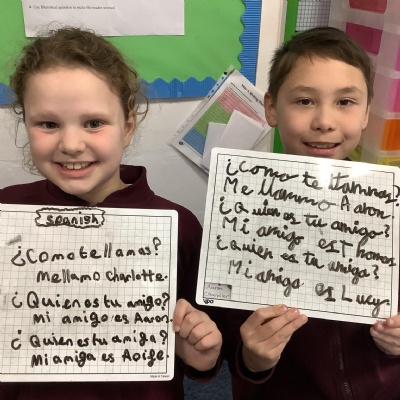 Spanish
¿Como te llamas?
Me llamo Charlotte.
¿Quien es tu amigo?
Mi amigo es Aaron.
¿Quien es tu amiga?
Mi amiga es Aoife.
¿Como te llamas?
Me llammo Aaron.
¿Quien es tu amigo?
Mi amigo es Thomas
¿Quien es tu amiga?
Mi amiga es Lucy.